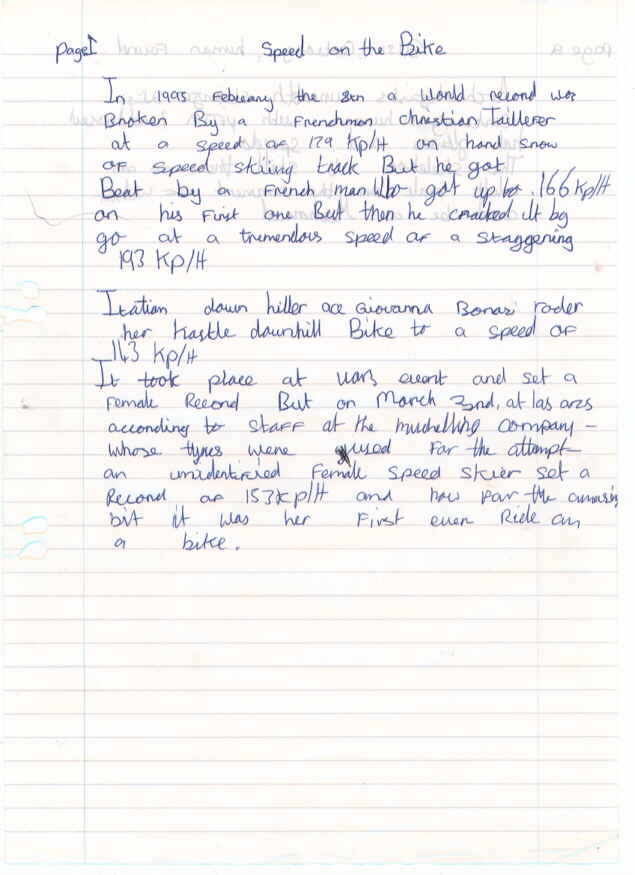 Page 1 Speed on the Bike
In 1995 Febuary the 8th a World record was
Broken By a Frenchman christian Taillerer
at a speed of 179 Kp/H on hard snow
of speed skiing track But he got
Beat by a French man Who got up to .166 Kp/H
on his First one But then he cracked it by
go at a tremendous speed of a staggering
193 Kp/H
Itatian down hiller ace Giovanna Bonazi roder
her Kastle downhill Bike to a speed of
143 Kp/H
It took place at vars event and set a
Female Record But on March 22nd, at las arcs
according to staff at the company -
whose tyres were used For the attempt
an Female Speed Skier set a
Record of 153 Kp/H and now For the
bit it was her First even Ride on
a bike.